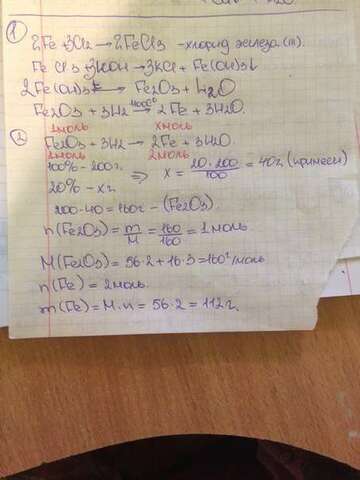 ①
2Fe+3Cl2→2FeCl3 -хлорид железа (III).
FeCl3+3KOH→3KCl+Fe(OH)3↓
2Fe(OH)3 → Fe2O3 + H2O
Fe2O3+3H2 →400C° 2Fe + 3H2O.
1моль хмоль
② Fe2O3+3H2→ 2Fe+3H2O.
1моль 2моль
100% - 200г.
20% - xг. => x = 20·200/100 = 40г (примеси)
200-40=160г - (Fe2O3).
n(Fe2O3)=m/M=160/160=1моль
M(Fe2O3)=56·2+16·3=160г/моль
n(Fe)=2моль.
m(Fe)=M·n=56·2=112г.